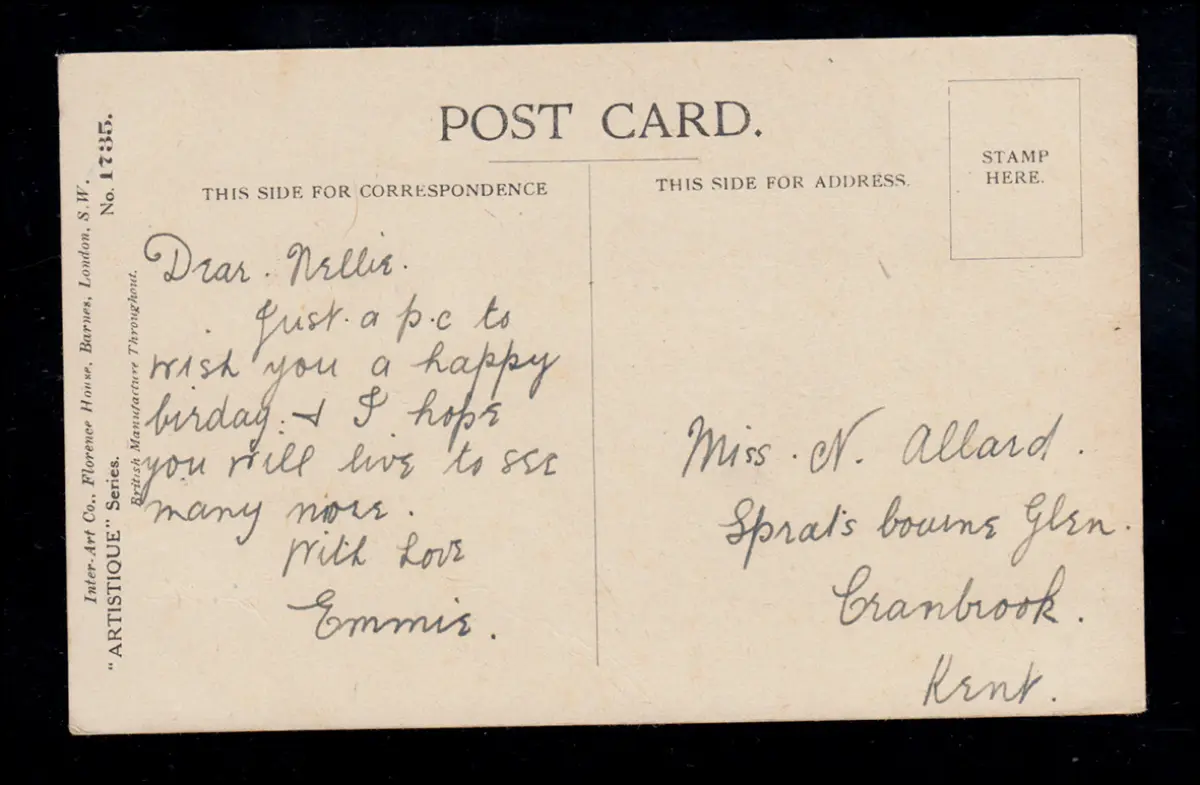 POST CARD.
THIS SIDE FOR CORRESPONDENCE
THIS SIDE FOR ADDRESS.
STAMP
HERE.
Inter-Art Co., Florence House, Barnes, London, S.W.
"ARTISTIQUE" Series.
No. 1735.
British Manufacture Throughout.
Dear. Nellie.
Just. a p.c to
wish you a happy
birday. & I hope
you will live to see
many more.
With Love
Emmie.
Miss. N. Allard.
Sprats bourne Glen.
Cranbrook.
Kent.